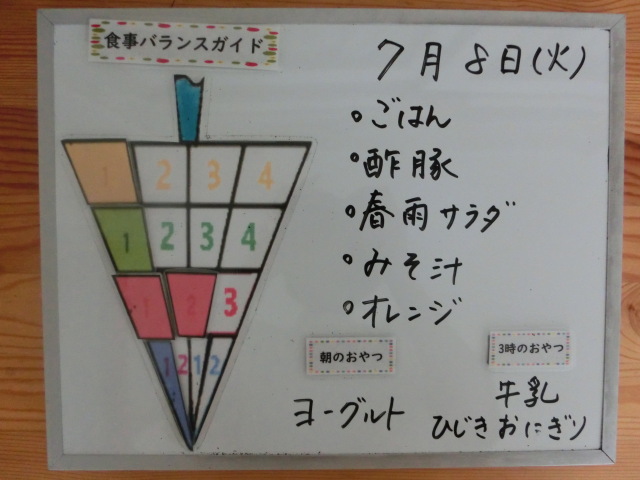 食事バランスガイド
7月8日(火)
1 2 3 4
1 2 3 4
1 2 3
1 2 1 2
・ごはん
・酢豚
・春雨サラダ
・みそ汁
・オレンジ
朝のおやつ
ヨーグルト
3時のおやつ
牛乳
ひじきおにぎり